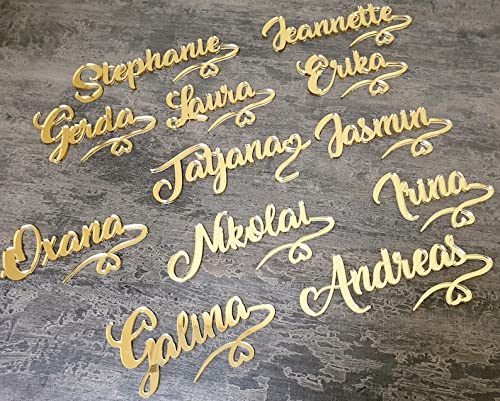 Stephanie
Jeannette
Gerda
Laura
Erika
Tatjana
Jasmin
Oxana
Nikolai
Irina
Galina
Andreas